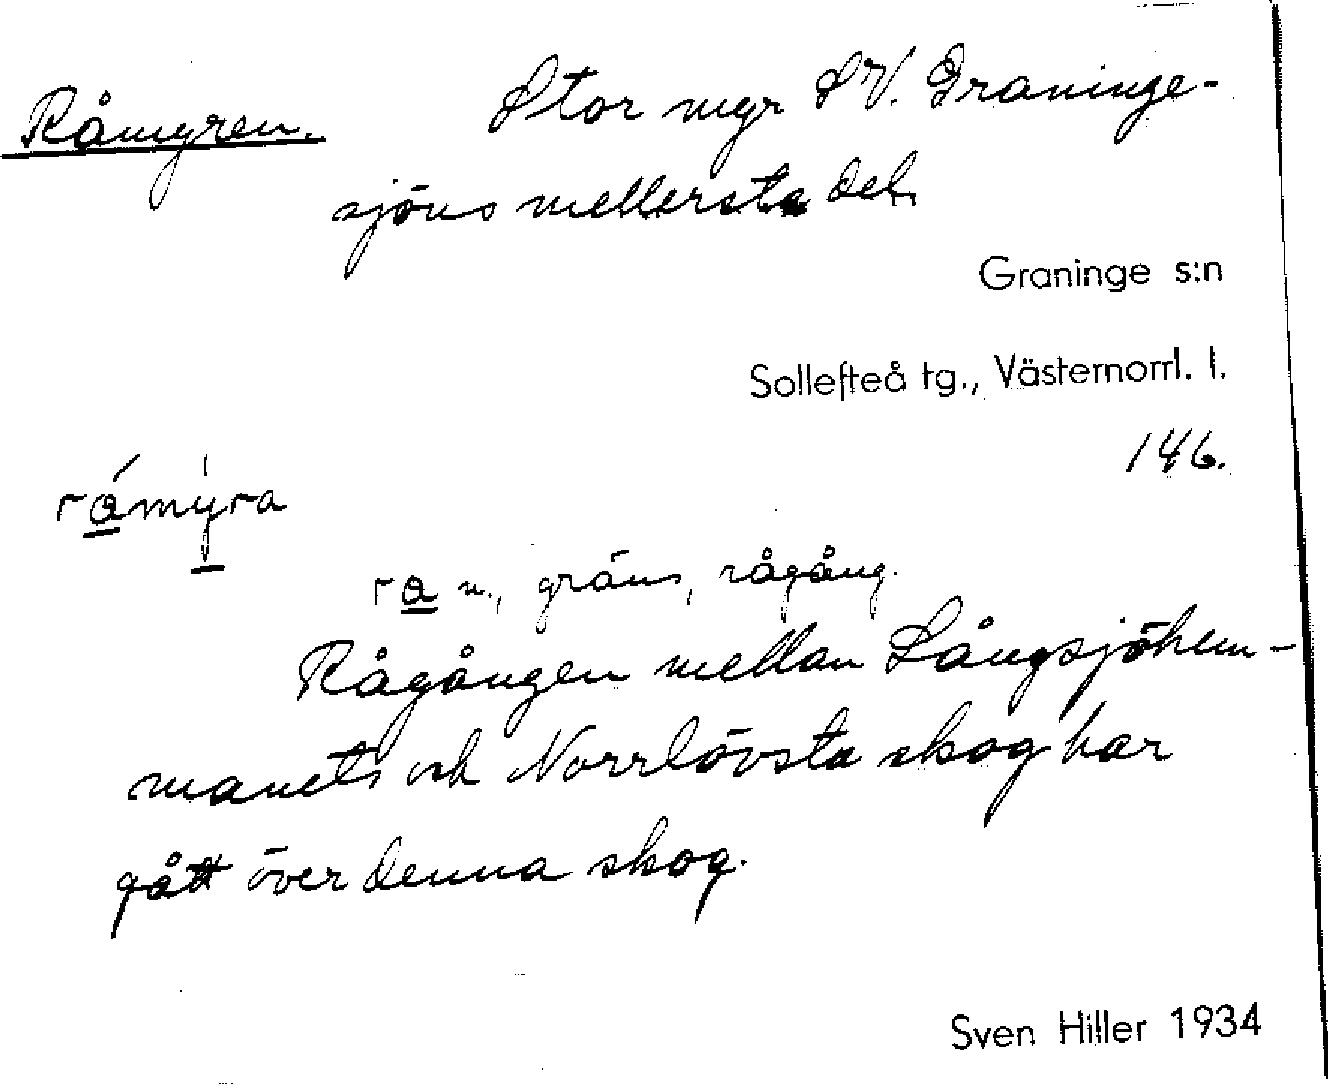 Råmyren. Stor myr SV. Graninge-
sjöns mellersta del.
Graninge s:n
Sollefteå tg., Västernorrl. l.
146.
råmyra
ra n., gräns, rågång.
Rågången mellan Långsjöhem-
manets och Norrlövsta skog har
gått över denna skog.
Sven Hiller 1934